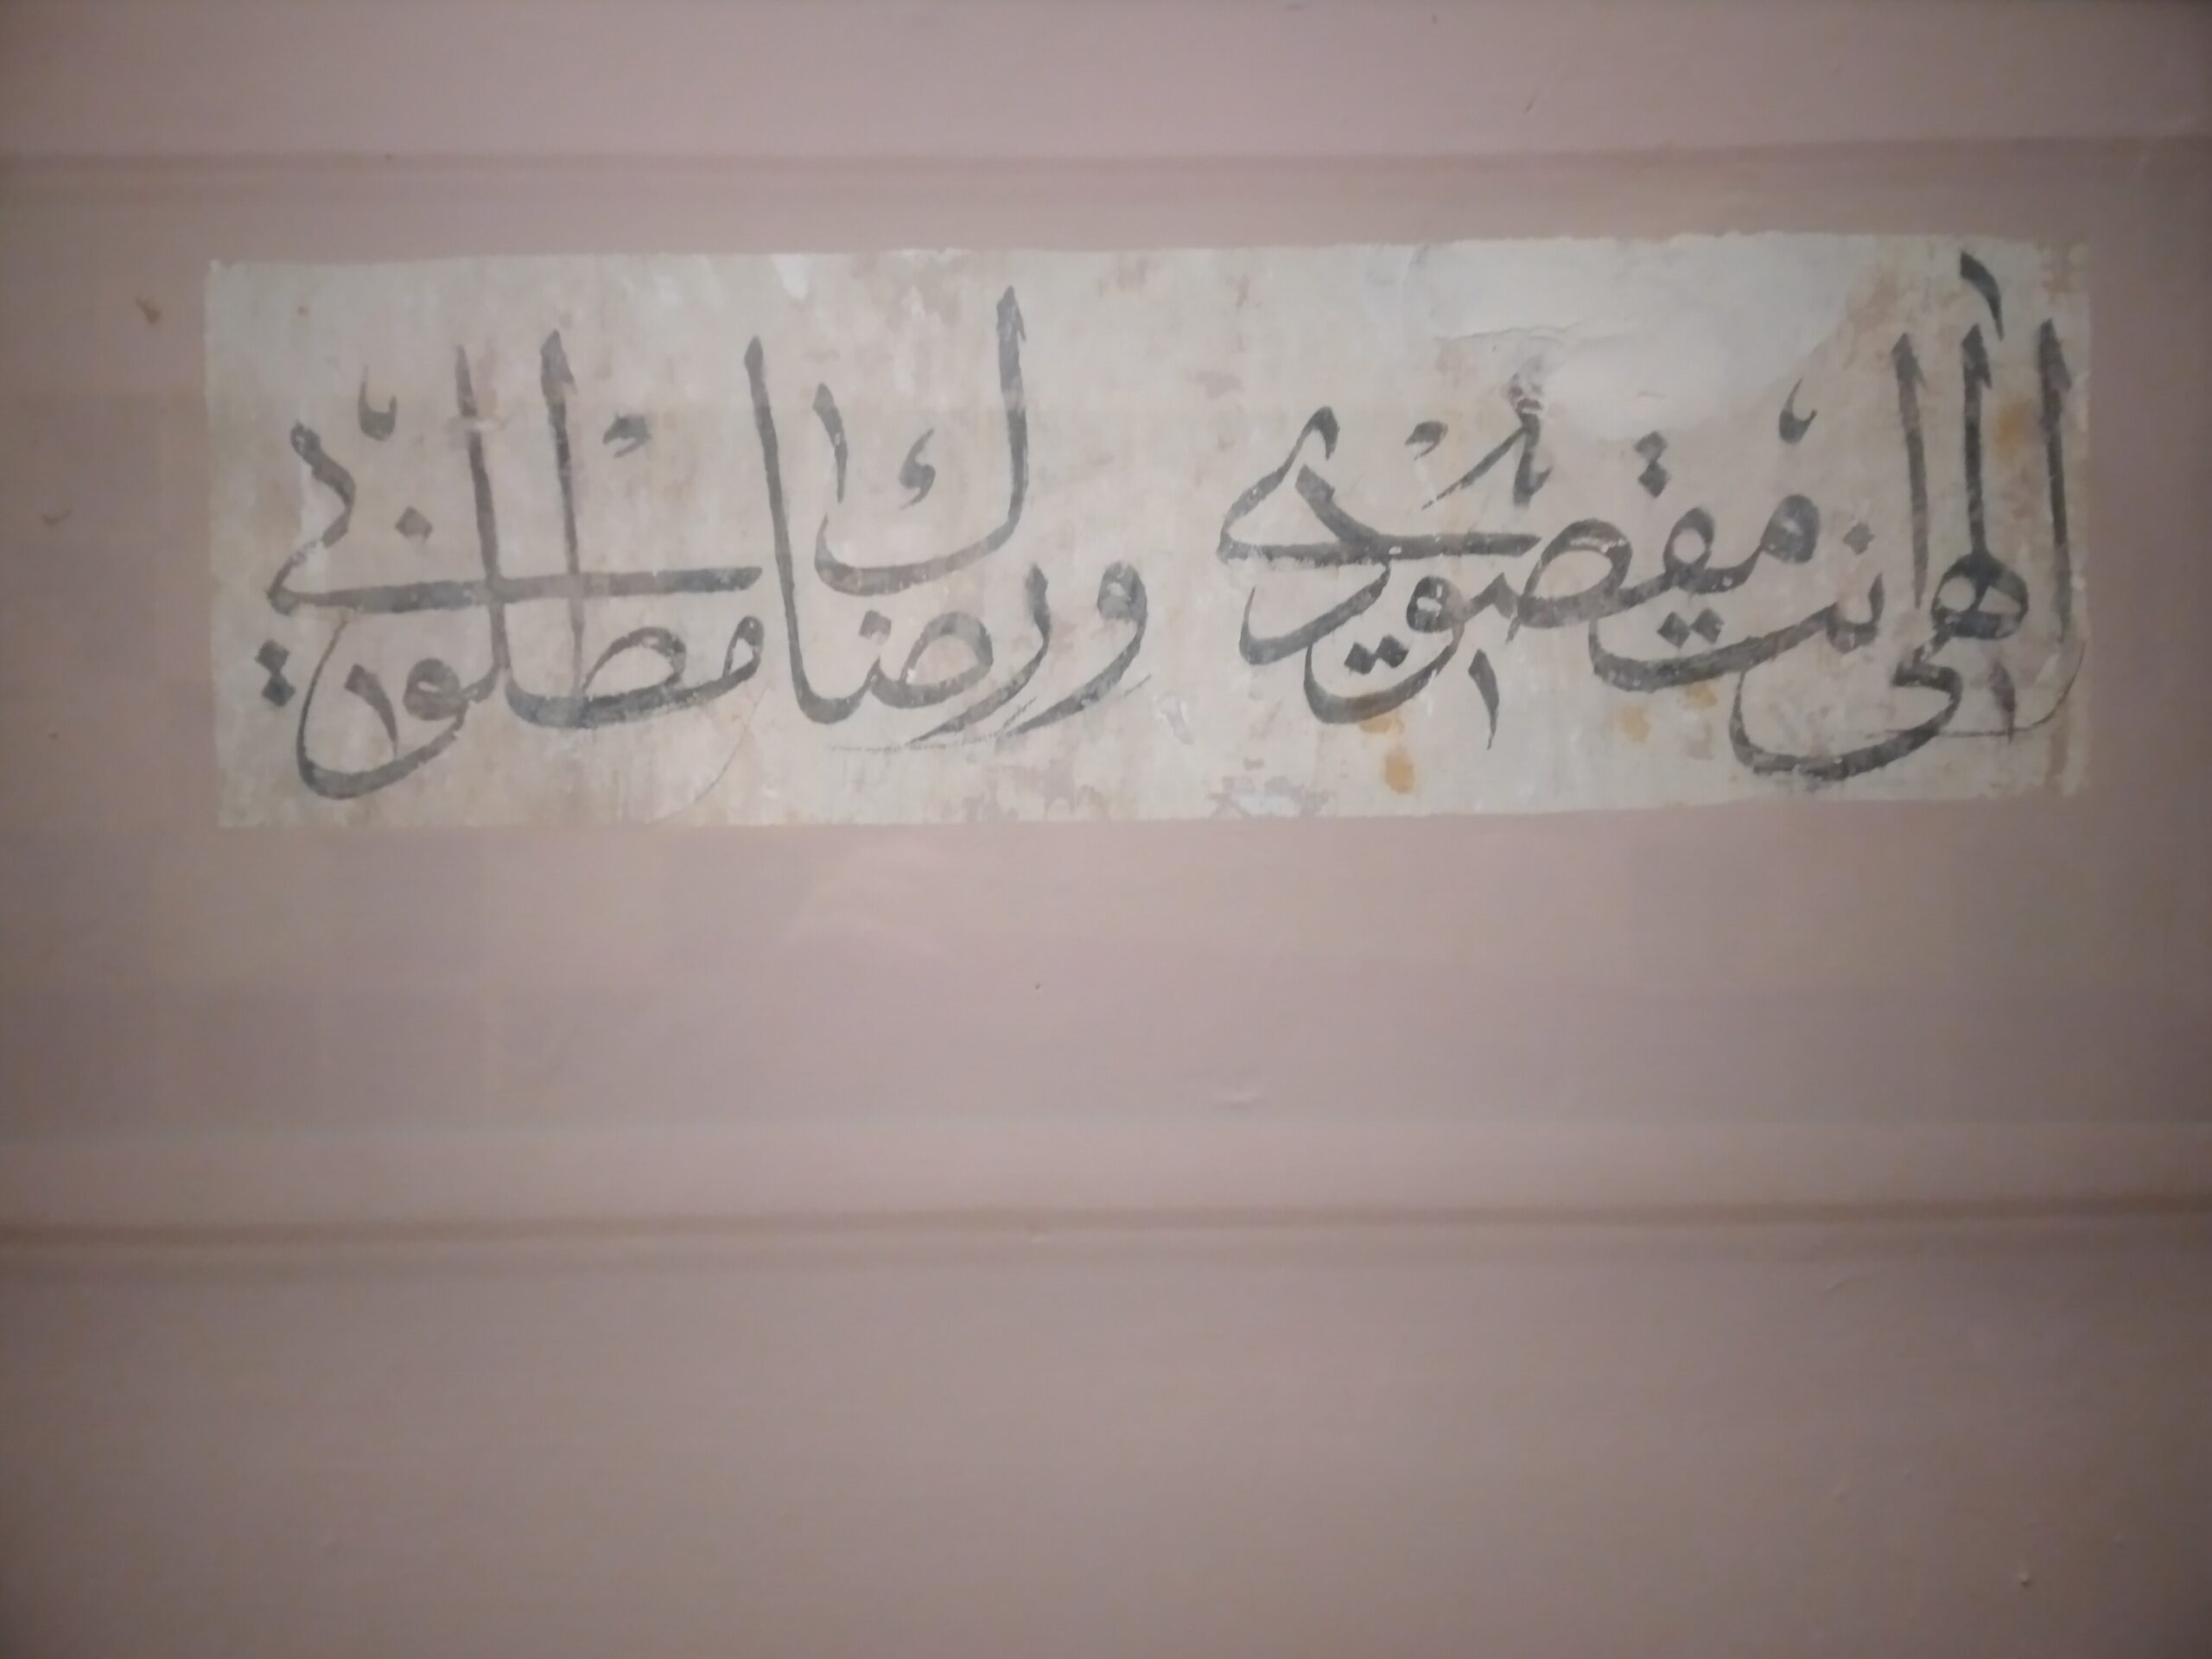 الهى انت مقصودي ورضاك مطلوبي